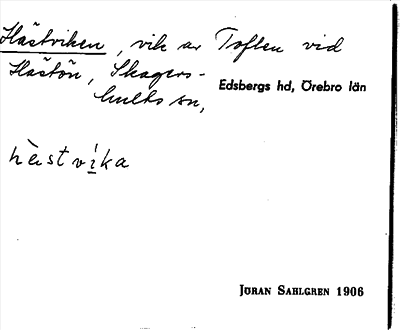 Hästviken, vik av Toften vid
Hästön, Skagers-
hults sn,
Edsbergs hd, Örebro län
hèstvi̱ka
JÖRAN SAHLGREN 1906